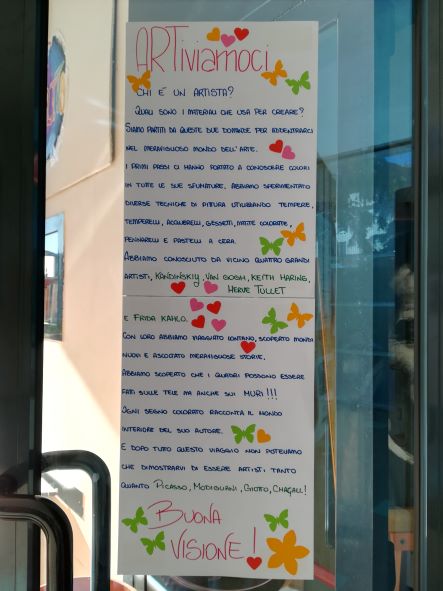 ARTiviamoci
CHI É UN ARTISTA?
QUALI SONO I MATERIALI CHE USA PER CREARE?
SIAMO PARTITI DA QUESTE DUE DOMANDE PER ADDENTRARCI
NEL MERAVIGLIOSO MONDO DELL'ARTE.
I PRIMI PASSI CI HANNO PORTATO A CONOSCERE COLORI
IN TUTTE LE SUE SFUMATURE, ABBIAMO SPERIMENTATO
DIVERSE TECNICHE DI PITTURA UTILIZZANDO TEMPERE,
TEMPERELLI, ACQUERELLI, GESSETTI, MATITE COLORATE,
PENNARELLI E PASTELLI A CERA.
ABBIAMO CONOSCIUTO DA VICINO QUATTRO GRANDI
ARTISTI, KANDINSKIY, VAN GOGH, KEITH HARING,
HERVE TULLET
E FRIDA KAHLO.
CON LORO ABBIAMO VIAGGIATO LONTANO, SCOPERTO MONDI
NUOVI E ASCOLTATO MERAVIGLIOSE STORIE.
ABBIAMO SCOPERTO CHE I QUADRI POSSONO ESSERE
FATTI SULLE TELE MA ANCHE SUI MURI!!!
OGNI SEGNO COLORATO RACCONTA IL MONDO
INTERIORE DEL SUO AUTORE.
E DOPO TUTTO QUESTO VIAGGIO NON POTEVAMO
CHE DIMOSTRARVI DI ESSERE ARTISTI TANTO
QUANTO PICASSO, MODIGLIANI, GIOTTO, CHAGALL!
BUONA
VISIONE!